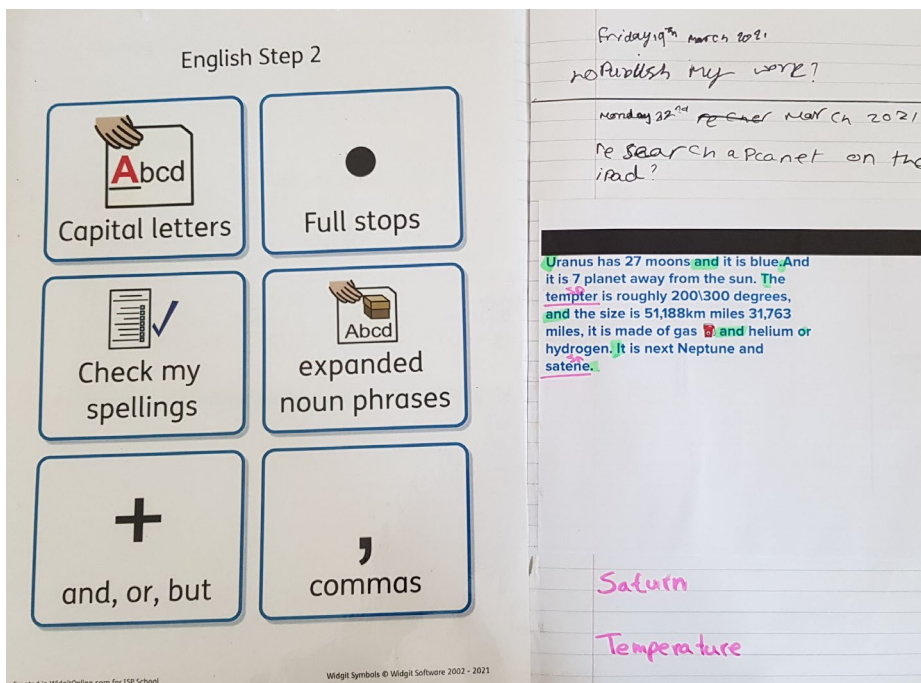 English Step 2
Abcd
Capital letters
Full stops
Check my
spellings
Abcd
expanded
noun phrases
and, or, but
,
commas
Widgit Symbols © Widgit Software 2002 - 2021
Friday 19th march 2021
Publish my work?
monday 22nd march 2021
research a planet on the
ipad?
Uranus has 27 moons and it is blue.And
it is 7 planet away from the sun. The
sp
tempter is roughly 200\300 degrees,
and the size is 51,188km miles 31,763
miles, it is made of gas and helium or
hydrogen. It is next Neptune and
sp
satene.
Saturn
Temperature